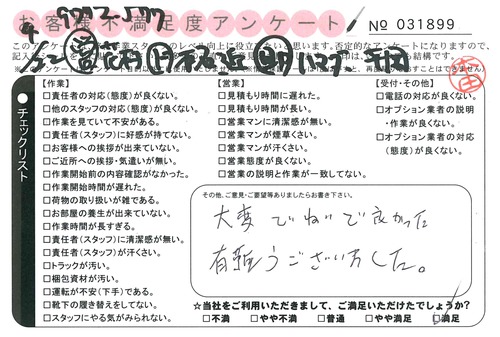 お客様不満足度アンケート
No 031899
【作業】
□責任者の対応(態度)が良くない。
□他のスタッフの対応(態度)が良くない。
□作業を見ていて不安がある。
□責任者(スタッフ)に好感が持てない。
□お客様への挨拶が出来ていない。
□ご近所への挨拶・気遣いが無い。
□作業開始前の内容確認がなかった。
□作業開始時間が遅れた。
□荷物の取り扱いが雑である。
□お部屋の養生が出来ていない。
□作業時間が長すぎる。
□責任者(スタッフ)に清潔感が無い。
□責任者(スタッフ)が汗くさい。
□トラックが汚い。
□梱包資材が汚い。
□運転が不安(下手)である。
□靴下の履き替えをしてない。
□スタッフにやる気がみられない。
【営業】
□見積もり時間に遅れた。
□見積もり時間が長い。
□営業マンに清潔感が無い。
□営業マンが煙草くさい。
□営業マンが汗くさい。
□営業態度が良くない。
□営業の説明と作業が一致してない。
【受付・その他】
□電話の対応が良くない。
□オプション業者の説明
・作業が良くない。
□オプション業者の対応
(態度)が良くない。
チェックリスト
その他、ご意見・ご要望等ありましたらお書き下さい。
大変 でねいで良かった
有難うございました。
☆当社をご利用いただきまして、ご満足いただけたでしょうか?
□不満 □やや不満 □普通 □やや満足 □満足